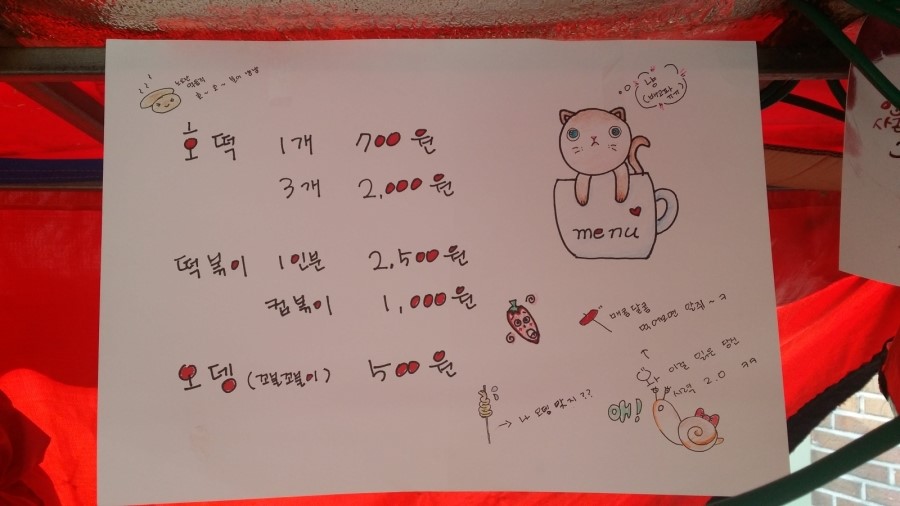 호떡 1개 700원
3개 2,000원
떡볶이 1인분 2,500원
컵볶이 1,000원
오뎅 (꼬불꼬불이) 500원
냥
(배고파 ㅠㅠ)
menu
매콤달콤
먹어보면 알지~ㅋ
이걸 읽은 당신
시력 2.0 ㅋㅋ
얘!
→ 나 오뎅 맞지??